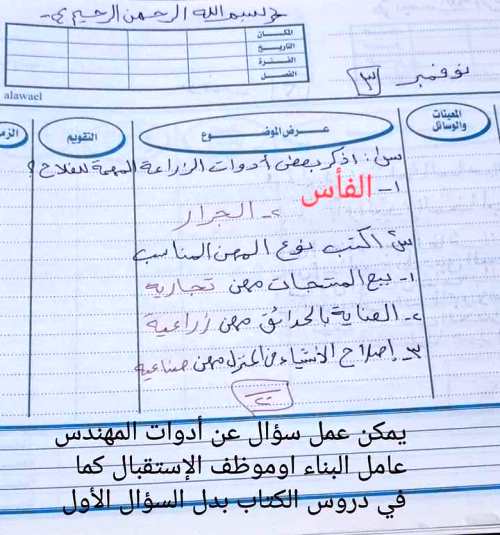 بسم الله الرحمن الرحيم
المكان
التاريخ
الفترة
الفصل
alawael
نوفمبر ٣
المعينات والوسائل
عرض الموضوع
التقويم
س١: اذكر بعض أدوات الزراعة المهمة للفلاح؟
١- الفأس
٢- الجرار
س٢ اكتب نوع المهن المناسب
١- بيع المنتجات مهن تجارية
٢- العناية بالحدائق مهن زراعية
٣- إصلاح الأشياء في المنزل مهن صناعية
يمكن عمل سؤال عن أدوات المهندس
عامل البناء اوموظف الإستقبال كما
في دروس الكتاب بدل السؤال الأول